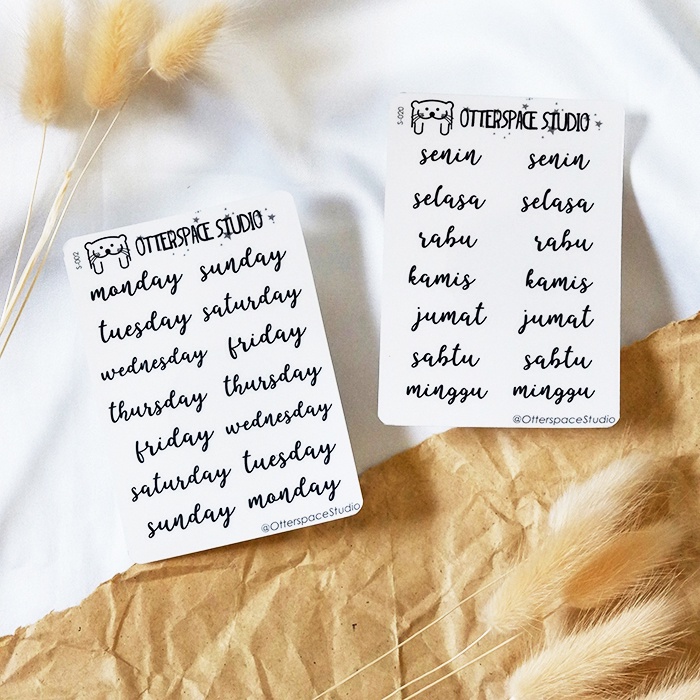 S-002
OTTERSPACE STUDIO
monday sunday
tuesday saturday
wednesday friday
thursday thursday
friday wednesday
saturday tuesday
sunday monday
@OtterspaceStudio
S-020
OTTERSPACE STUDIO
senin senin
selasa selasa
rabu rabu
kamis kamis
jumat jumat
sabtu sabtu
minggu minggu
@OtterspaceStudio